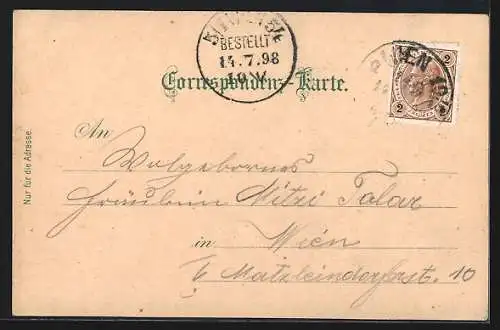 BESTELLT
14.7.98
10.V
2
2
Correspondenz-Karte.
An
Wolgebornes
Fräulein Mitzi Talar
in Wien
Matzleindorferst. 10
Nur für die Adresse.